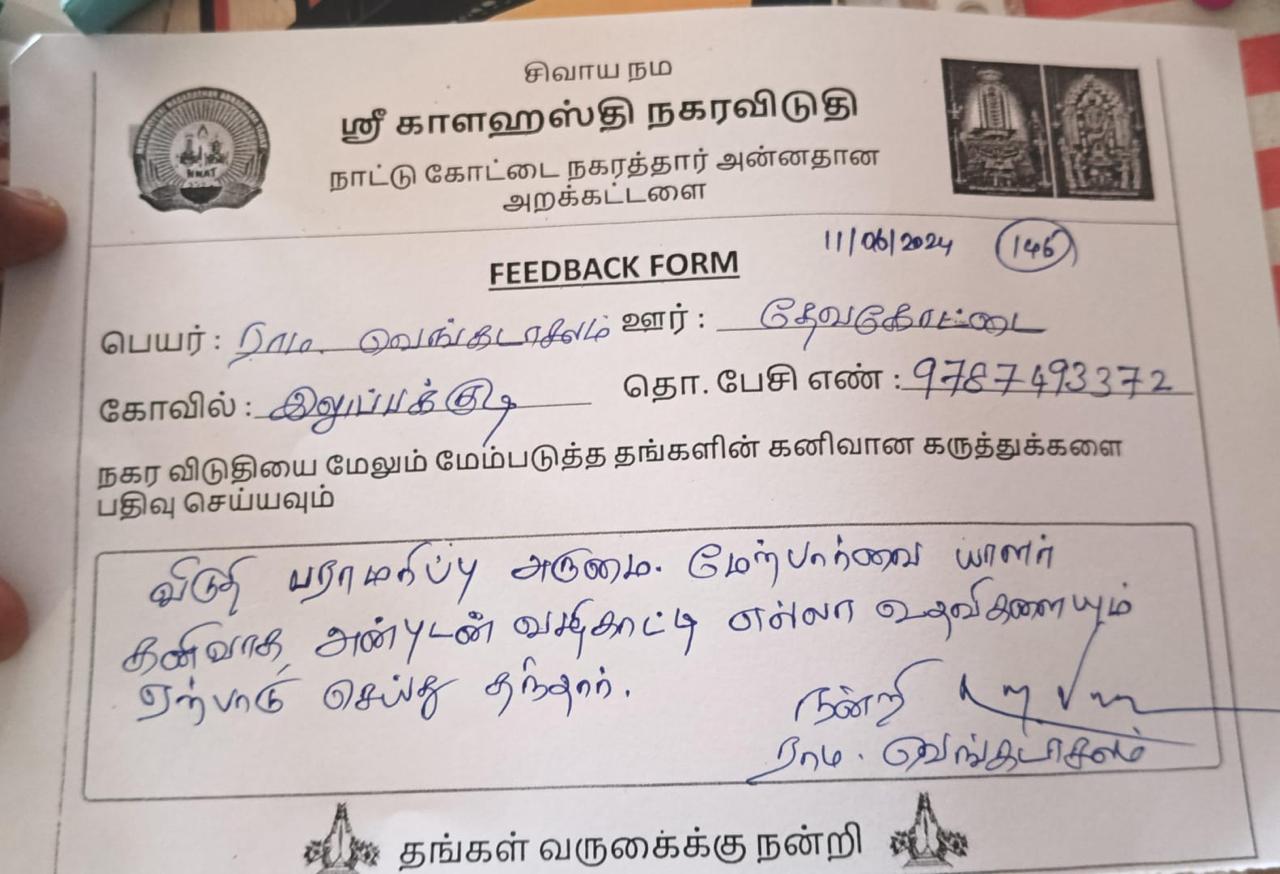 சிவாய நம
ஸ்ரீ காளஹஸ்தி நகரவிடுதி
நாட்டு கோட்டை நகரத்தார் அன்னதான
அறக்கட்டளை
NNAT
11/06/2024 146
FEEDBACK FORM
பெயர் : ராம. வெங்கடாசலம் ஊர் : தேவகோட்டை
கோவில் : இலுப்பக்குடி தொ. பேசி எண் : 9787493372
நகர விடுதியை மேலும் மேம்படுத்த தங்களின் கனிவான கருத்துக்களை
பதிவு செய்யவும்
விடுதி பராமரிப்பு அருமை. மேற்பார்வை யாளர்
கனிவாக, அன்புடன் வழிகாட்டி எல்லா உதவிகளையும்
ஏற்பாடு செய்து தந்தார்.
நன்றி
ராம. வெங்கடாசலம்
தங்கள் வருகைக்கு நன்றி